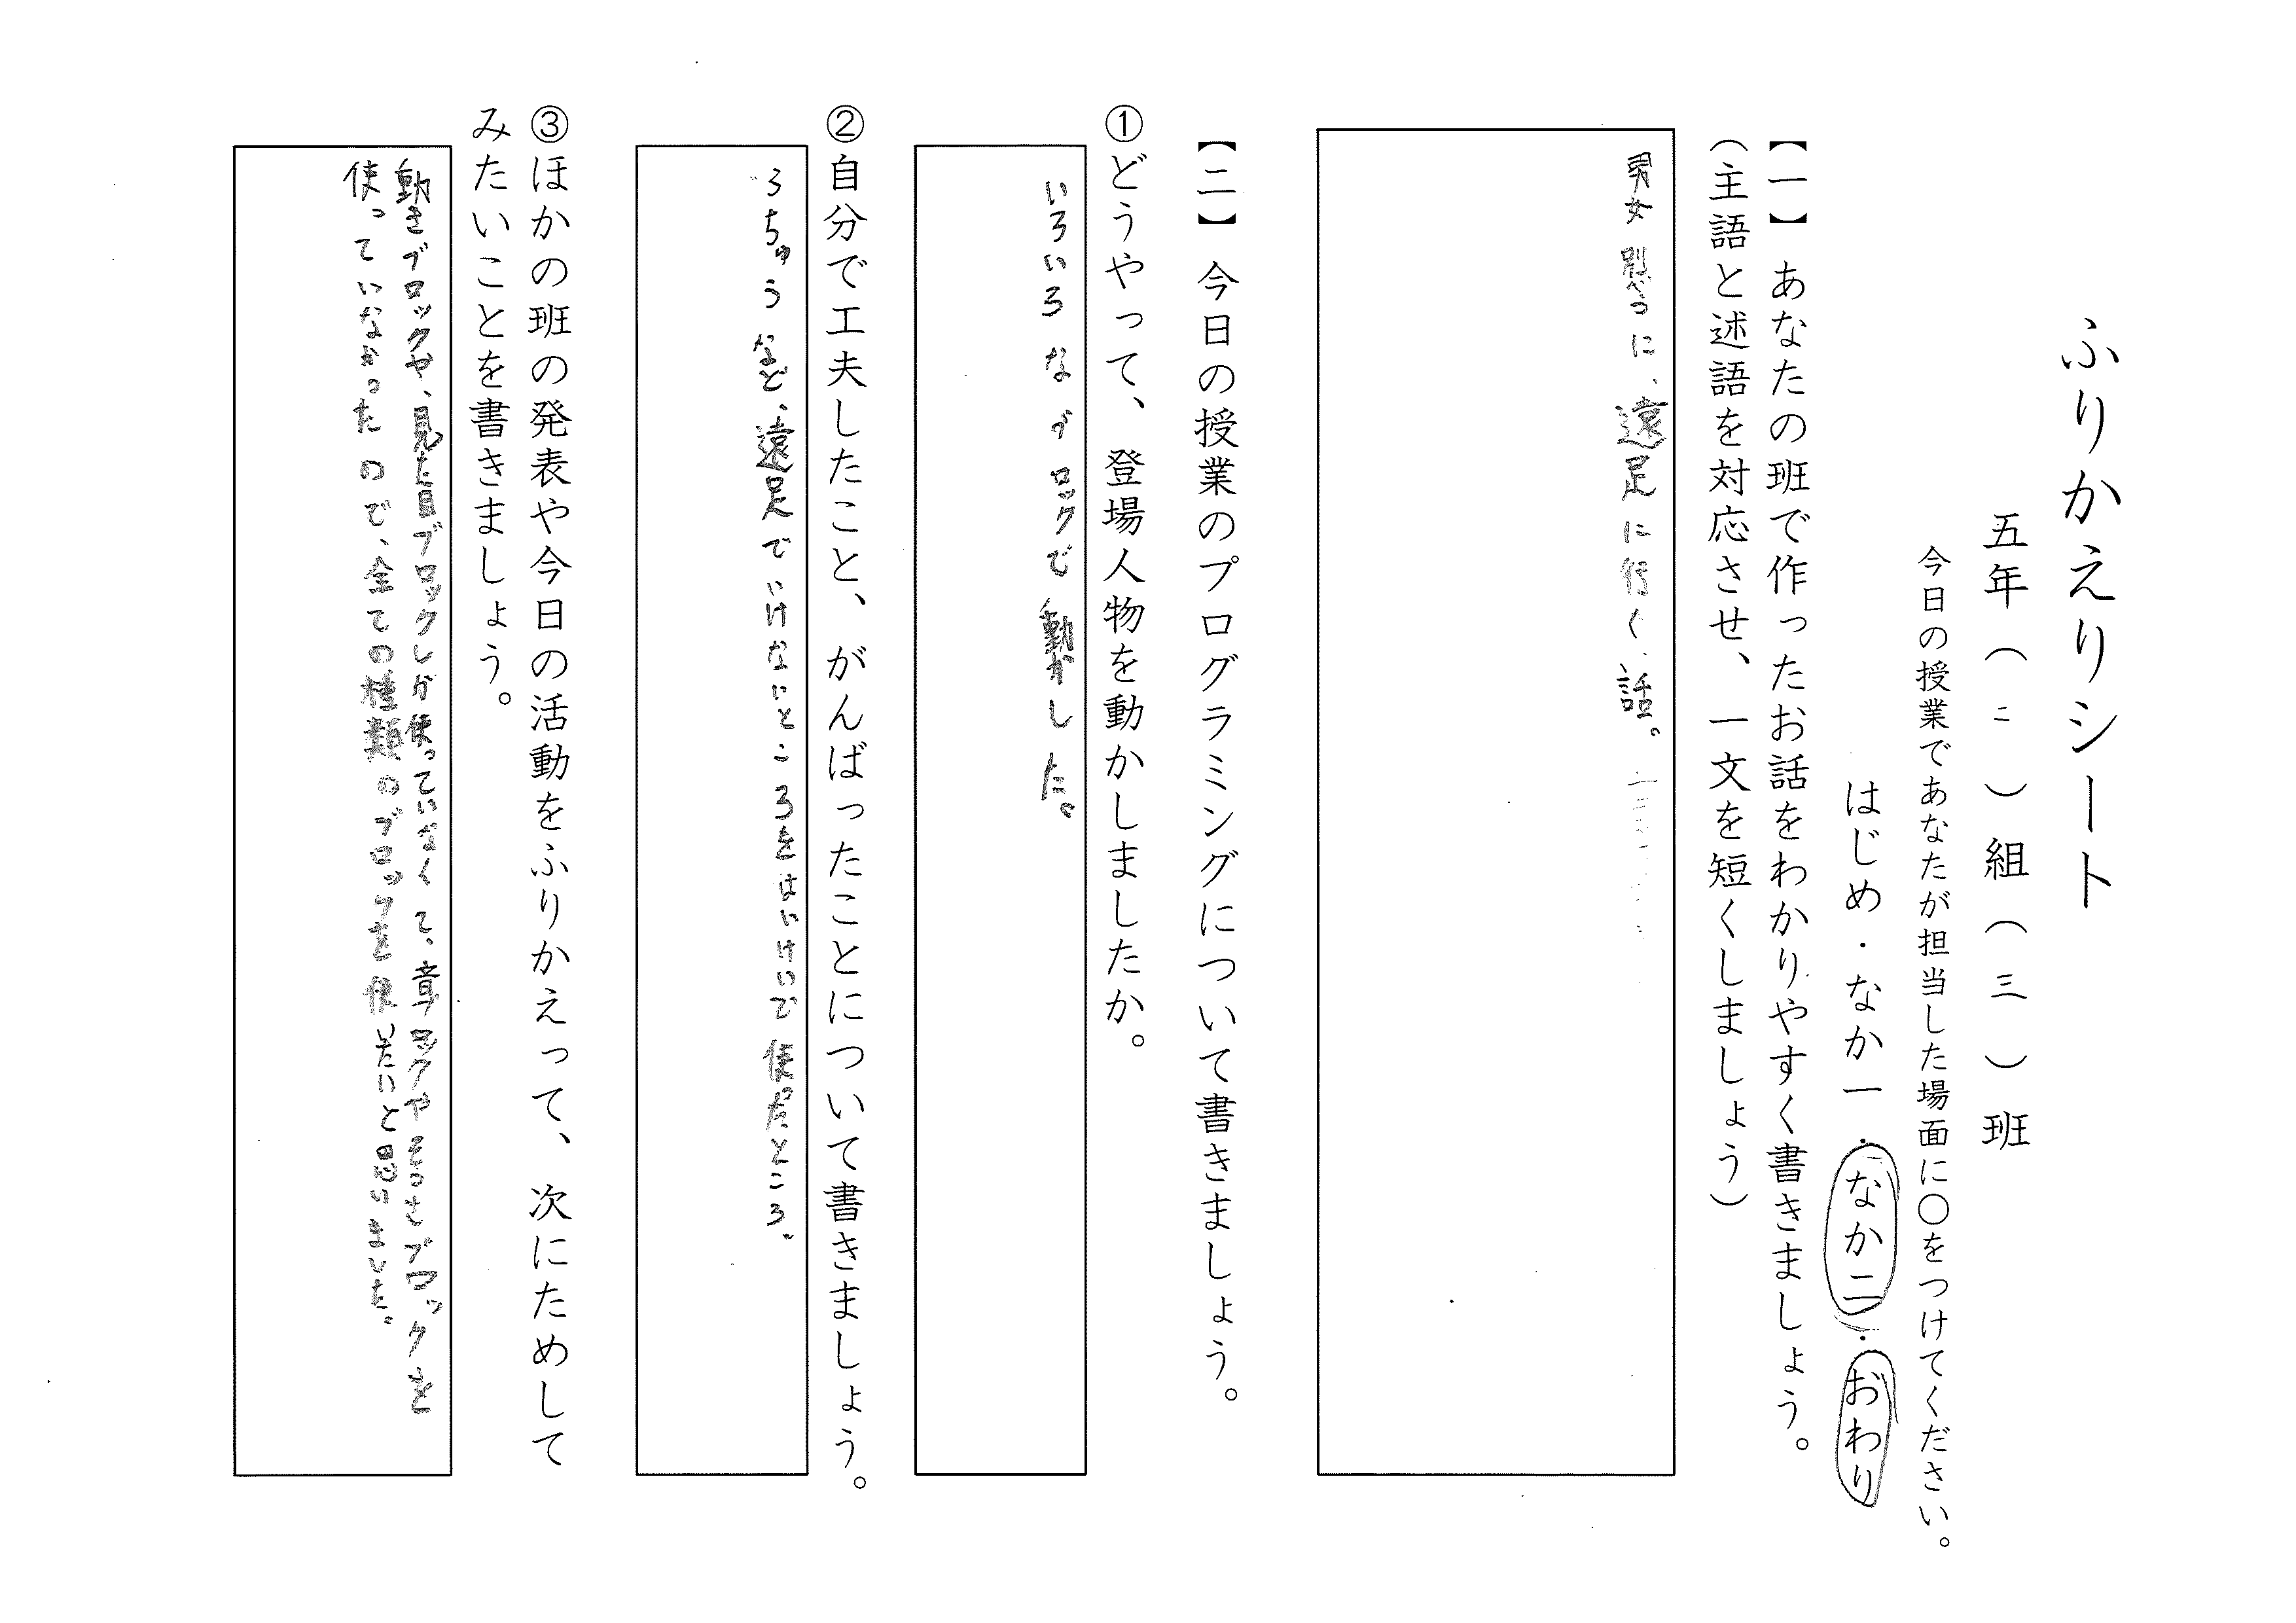 ふりかえりシート
五年（二）組（三）班
今日の授業であなたが担当した場面に〇をつけてください。
はじめ・なか一・なか二・おわり
【一】あなたの班で作ったお話をわかりやすく書きましょう。
（主語と述語を対応させ、一文を短くしましょう）
男女別べつに、遠足に行く、話。
【二】今日の授業のプログラミングについて書きましょう。
①どうやって、登場人物を動かしましたか。
いろいろなブロックで動かした。
②自分で工夫したこと、がんばったことについて書きましょう。
うちゅうなど、遠足でいけないところをはいけいで使ったところ。
③ほかの班の発表や今日の活動をふりかえって、次にためして
みたいことを書きましょう。
動きブロックや、見た目ブロックしか使っていなくて、章ロックやそうさブロックを
使っていなかったので、全ての種類のブロックを使いたいと思いました。